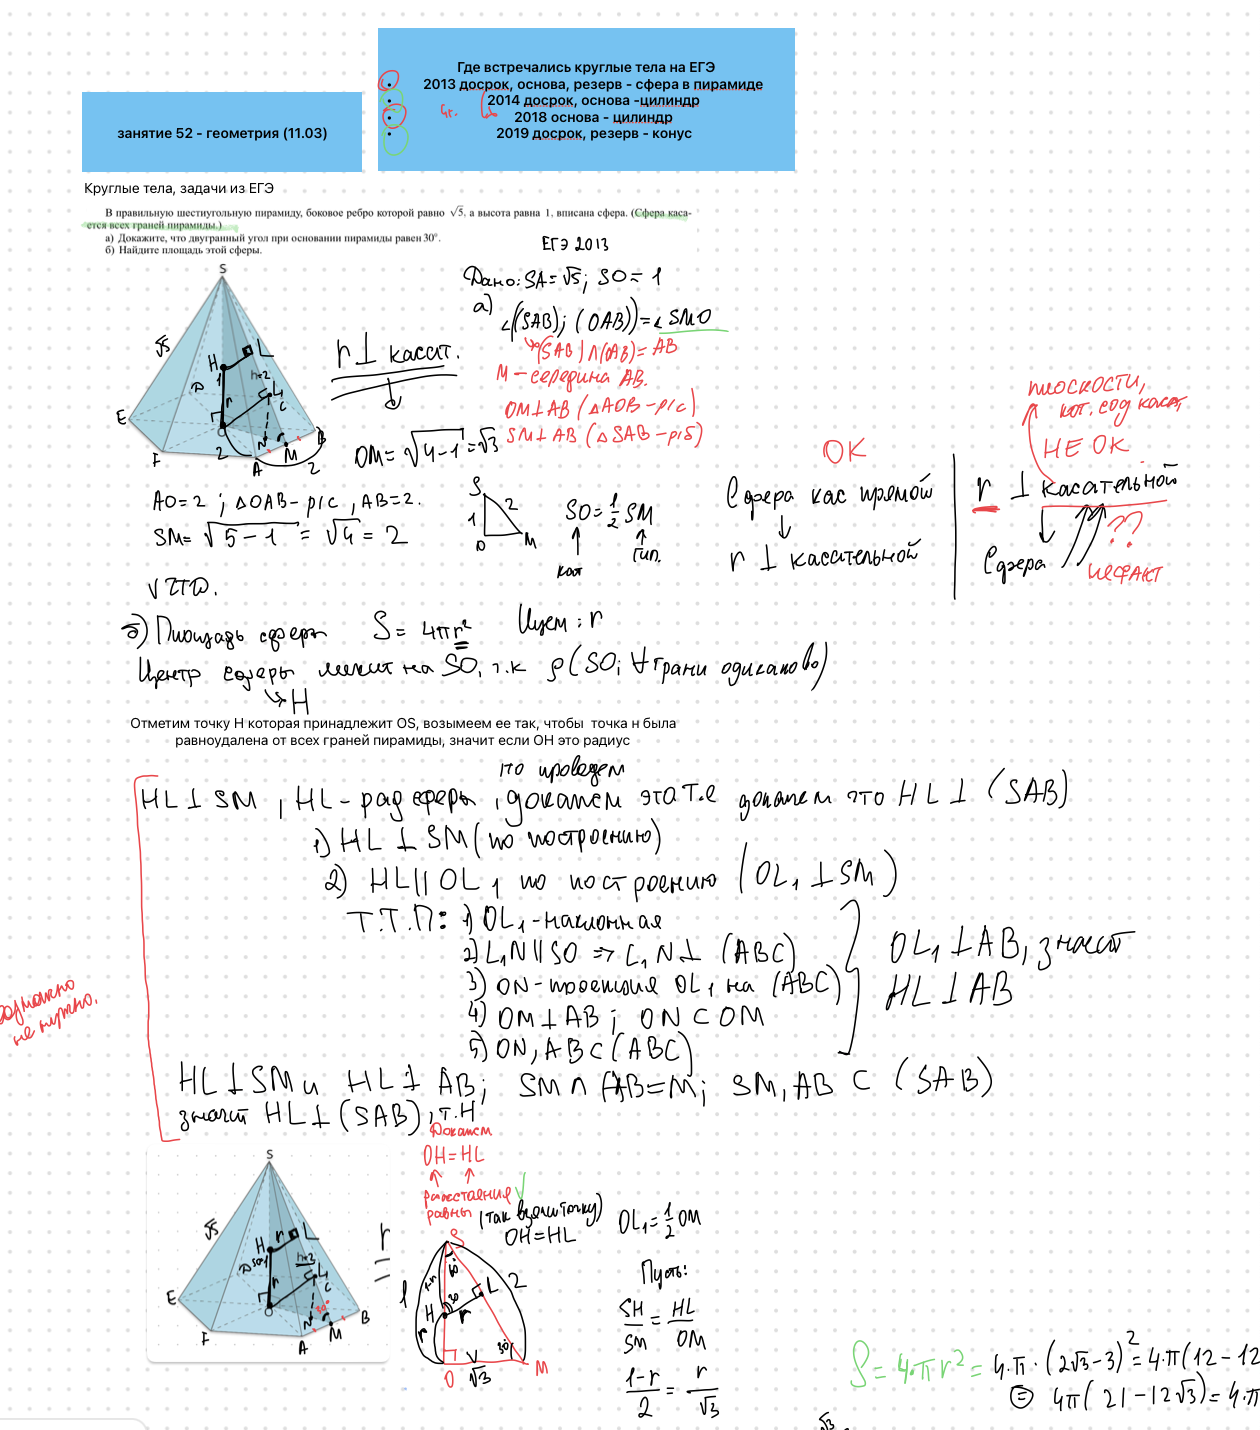 Где встречались круглые тела на ЕГЭ
2013 досрок, основа, резерв - сфера в пирамиде
2014 досрок, основа -цилиндр
2018 основа - цилиндр
2019 досрок, резерв - конус
4г.
занятие 52 - геометрия (11.03)
Круглые тела, задачи из ЕГЭ
В правильную шестиугольную пирамиду, боковое ребро которой равно √5, а высота равна 1, вписана сфера. (Сфера каса-
ется всех граней пирамиды.)
а) Докажите, что двугранный угол при основании пирамиды равен 30°.
б) Найдите площадь этой сферы.
ЕГЭ 2013
Дано: SA=√5; SO=1
а)
∠((SAB); (OAB))=∠SMO
(SAB)∩(OAB)=AB
M – середина AB.
OM⊥AB (△AOB – р/с)
SM⊥AB (△SAB – р/б)
S
√5
H
L
1
D
h=2
r
L₁
C
E
O
N
B
F
2
A
M
2
r⊥касат.
OM=√4-1=√3
AO=2; △OAB – р/с, AB=2.
SM=√5-1=√4=2
ЧТД.
S
1
2
O
M
SO=½SM
кат
гип.
ОК
Сфера кас прямой
r⊥касательной
плоскости,
кот. сод касат,
НЕ ОК
r⊥касательной
Сфера
??
НЕФАКТ
б) Площадь сферы S=4πr² Ищем: r
Центр сферы лежит на SO, т.к ρ(SO; ∀грани одинаково)
H
Отметим точку H которая принадлежит OS, возымеем ее так, чтобы точка н была
равноудалена от всех граней пирамиды, значит если OH это радиус
то проведем
HL⊥SM, HL-рад сферы, докажем это т.е докажем что HL⊥(SAB)
1) HL⊥SM (по построению)
2) HL||OL₁ по построению (OL₁⊥SM)
Т.Т.П: 1) OL₁-наклонная
2) L₁N||SO ⇒ L₁N⊥(ABC)
3) ON-проекция OL₁ на (ABC)
4) OM⊥AB; ON⊂OM
5) ON, AB⊂(ABC)
OL₁⊥AB, значит
HL⊥AB
возможно
не нужно.
HL⊥SM и HL⊥AB; SM∩AB=M; SM, AB⊂(SAB)
значит HL⊥(SAB), т.н
Докажем
OH=HL
расстояния
равны
(так взяли точку)
OH=HL
S
√5
H
r
L
D
h=2
r
L₁
C
E
O
30°
N
B
F
A
M
r
=
S
60°
1-r
L
2
1
H
30
r
r
30°
O
√3
M
OL₁=½OM
Пусть:
SH/SM=HL/OM
1-r/2=r/√3
S=4·π·r²=4·π·(2√3-3)²=4·π(12-12
=4π(21-12√3)=4·π
√3